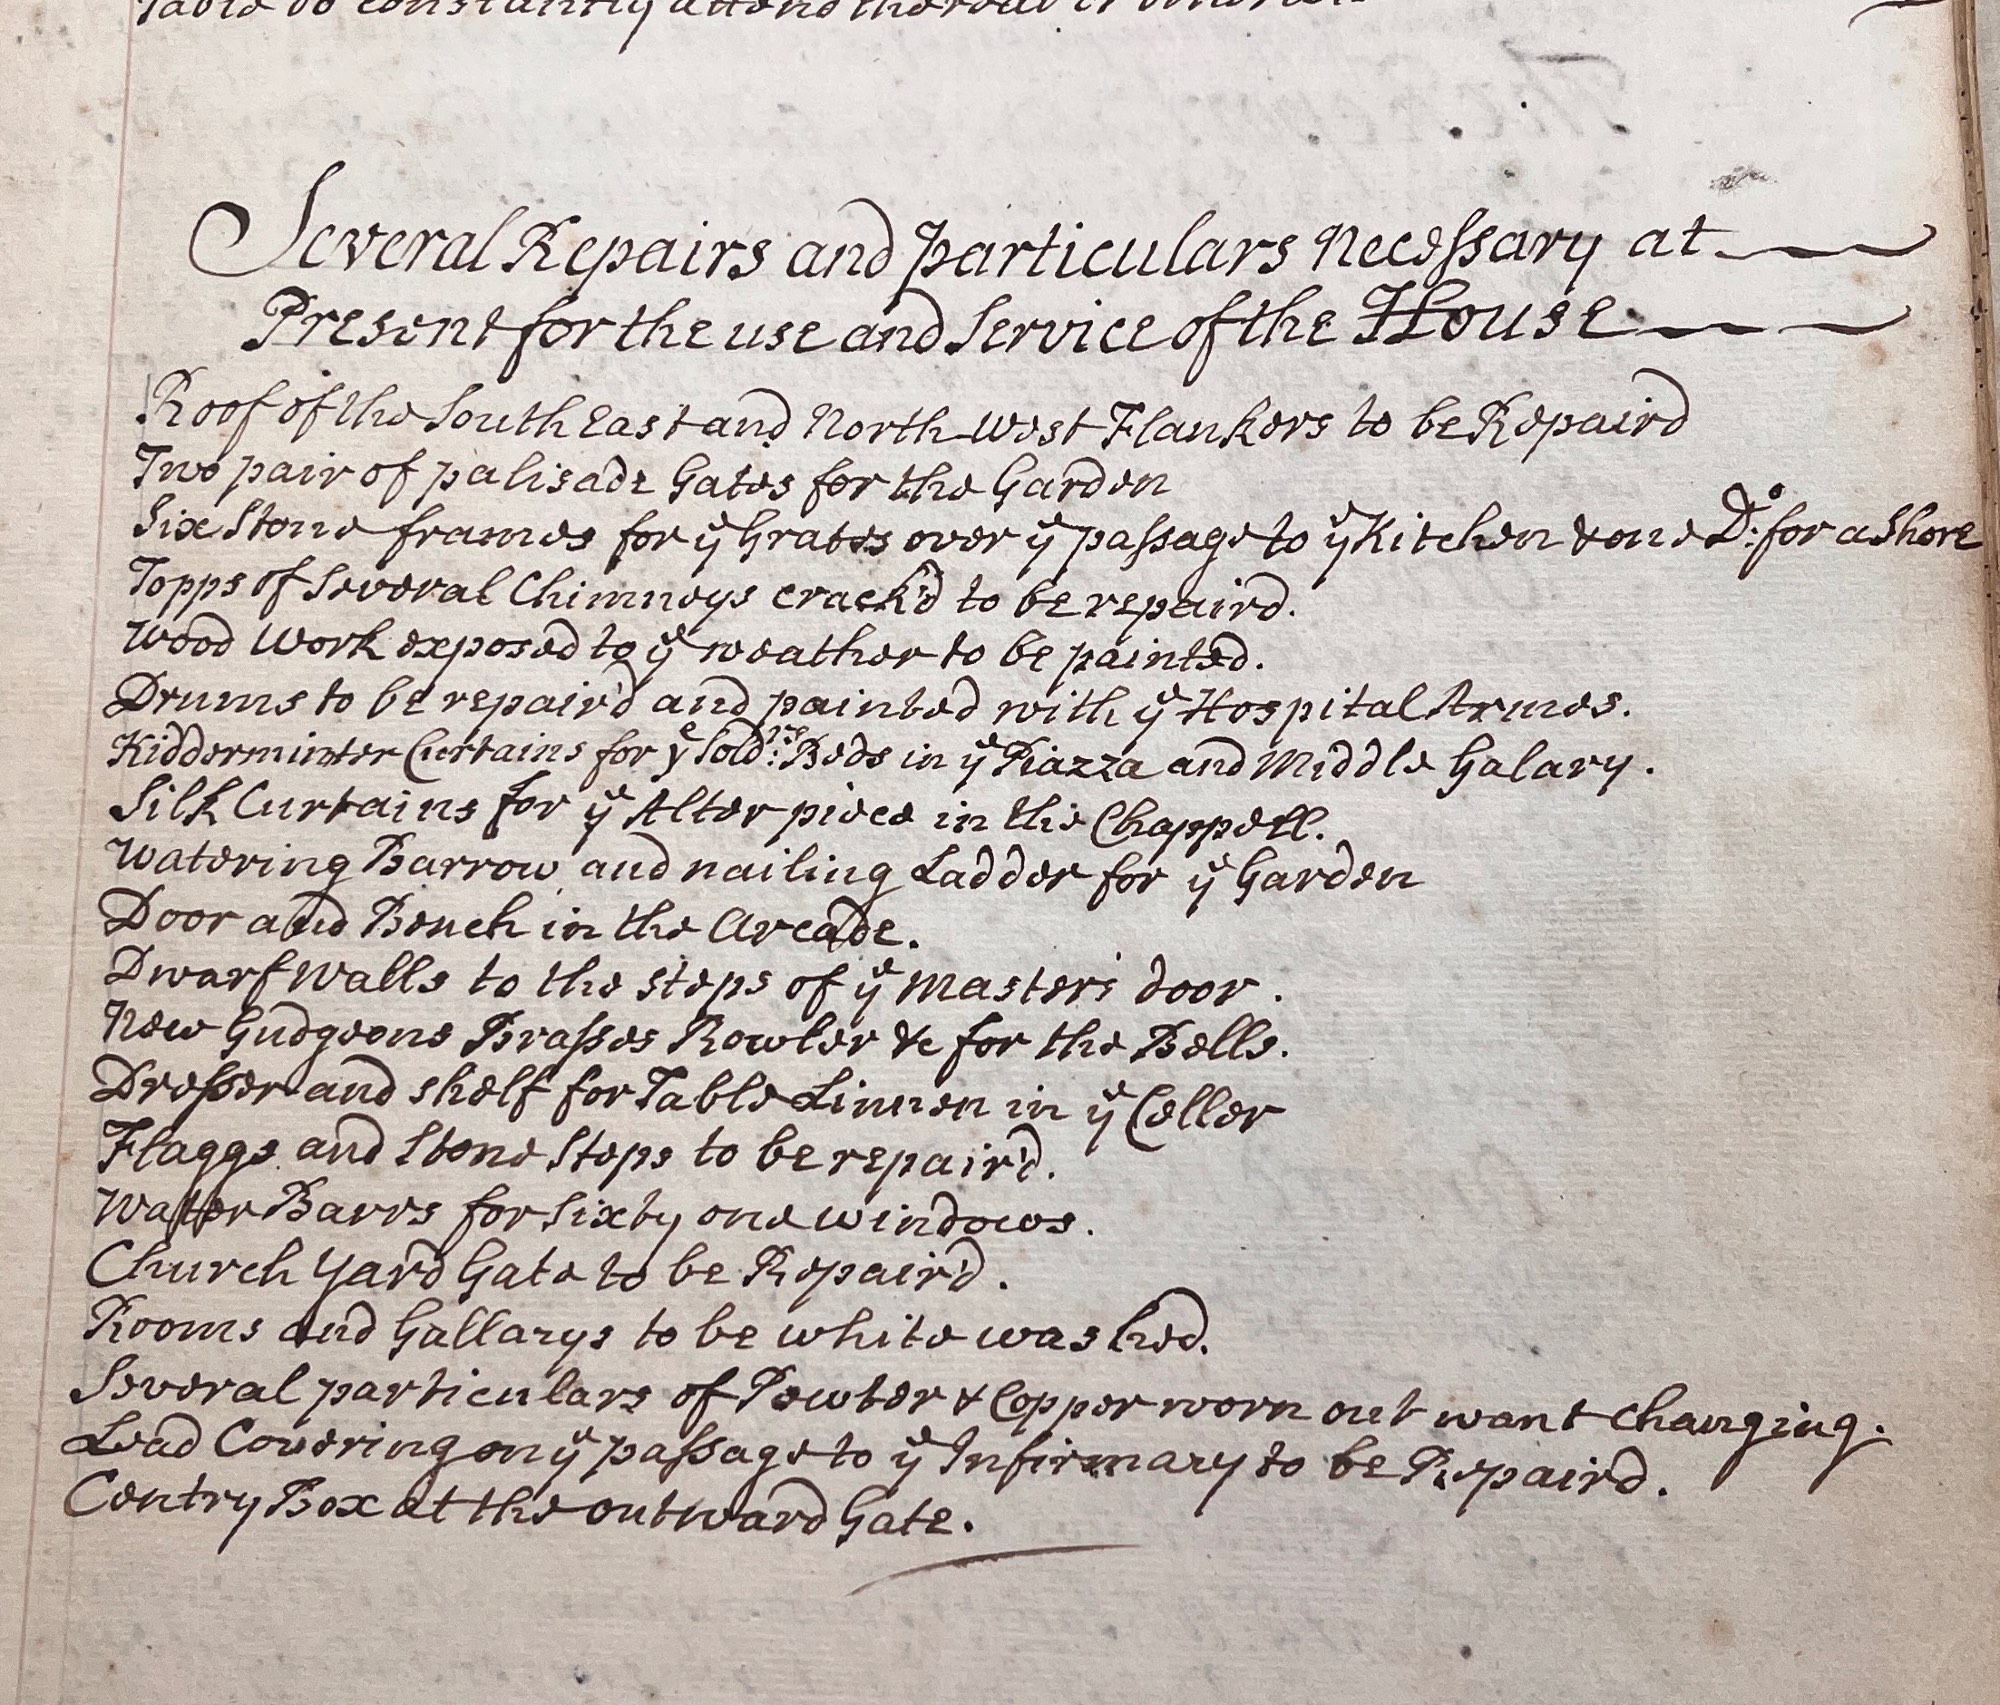 Table to constantly attend thereat
Several Repairs and particulars Necessary at
Present for the use and Service of the House
Roof of the South East and North West Flankers to be Repaird
Two pair of palisade Gates for the Garden
Six Stone frames for yͤ Grates over yͤ passage to yͤ Kitchen & one Dº: for a Shore
Topps of Several Chimneys crack'd to be repaird.
Wood Work exposed to yͤ weather to be painted.
Drums to be repair'd and painted with yͤ Hospital Armes.
Kidderminter Curtains for yͤ Sold:ʳˢ Beds in yͤ Piazza and Middle Galary.
Silk Curtains for yͤ Alter piece in the Chappell.
Watering Barrow and nailing Ladder for yͤ Garden
Door and Bench in the Arcade.
Dwarf Walls to the steps of yͤ Master's door.
New Gudgeons Brasses Rowler &c for the Bells.
Dresser and shelf for Table Linnen in yͤ Celler
Flaggs and Stone Steps to be repair'd.
Water Barrs for Sixty one windows.
Church Yard Gate to be Repair'd.
Rooms and Gallarys to be white washed.
Several particulars of Pewter & Copper worn out want changing.
Lead Covering on yͤ passage to yͤ Infirmary to be Repaird.
Centry Box at the outward Gate.